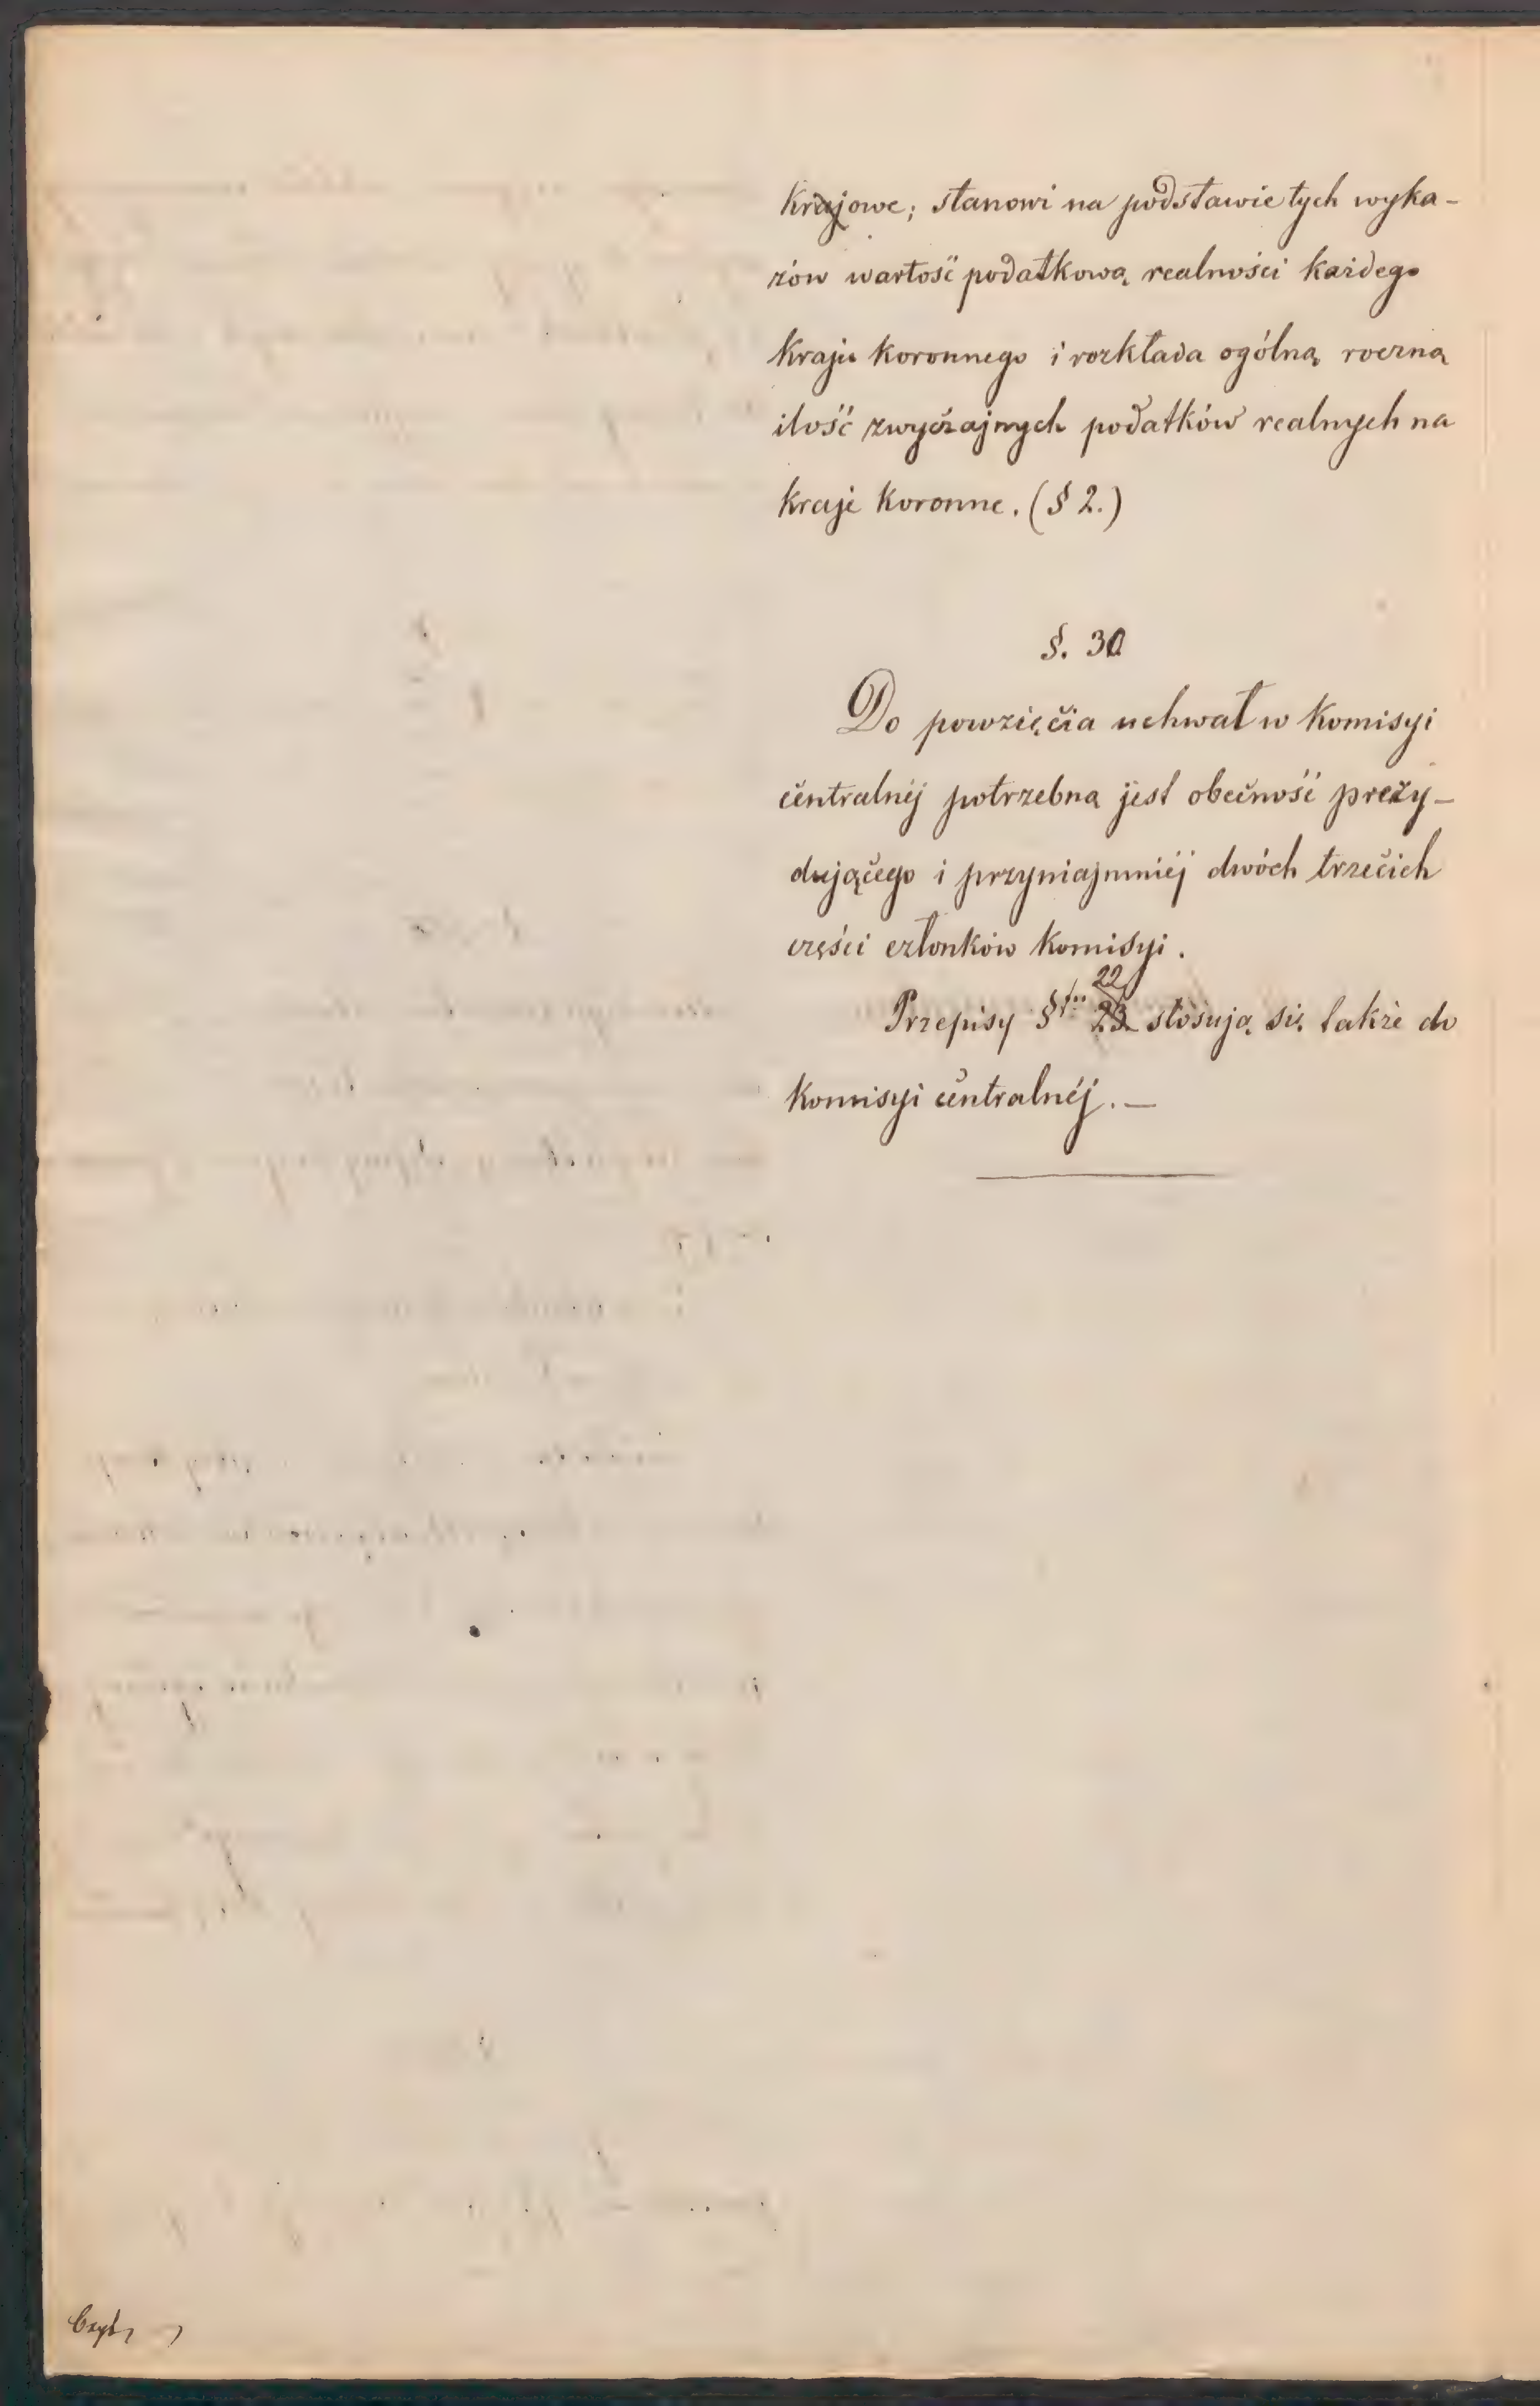 krajowe; stanowi na podstawie tych wyka-
zów wartość podatkową realności każdego
kraju koronnego i rozkłada ogólną roczną
ilość zwyczajnych podatków realnych na
kraje koronne. (§ 2.)
§. 30
Do powzięcia uchwał w komisyi
centralnéj potrzebną jest obecność prezy-
dującego i przyniajmniéj dwóch trzecich
części członków komisyi.
22
Przepisy §fu 23 stosują się także do
komisyi centralnéj. —